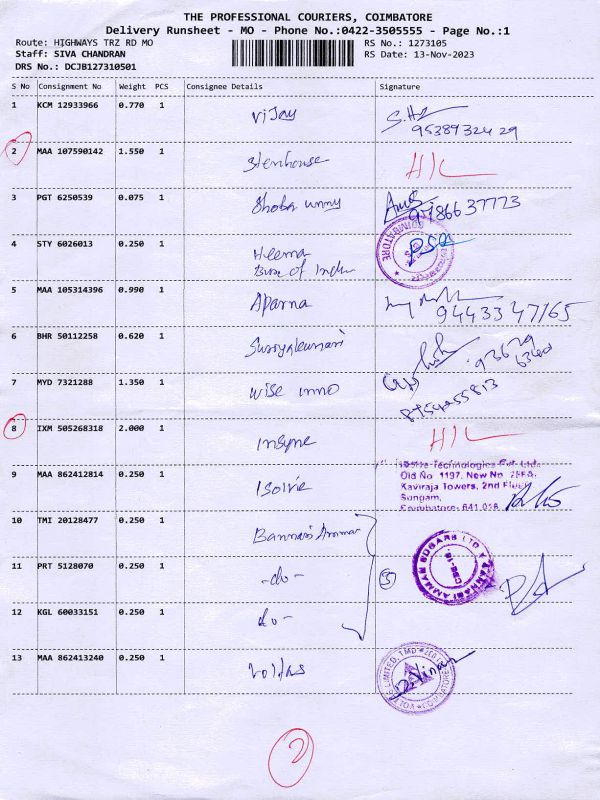 THE PROFESSIONAL COURIERS, COIMBATORE
Delivery Runsheet - MO - Phone No.:0422-3505555 - Page No.:1
Route: HIGHWAYS TRZ RD MO RS No.: 1273105
Staff: SIVA CHANDRAN RS Date: 13-Nov-2023
DRS No.: DCJB127310501
S No Consignment No Weight PCS Consignee Details Signature
1 KCM 12933966 0.770 1 Vijay
9538932429
2 MAA 107590142 1.550 1 Stenhouse
3 PGT 6250539 0.075 1 Shoba unny 9786637723
4 STY 6026013 0.250 1 Heema
COIMBATORE
5 MAA 105314396 0.990 1 Aparna
9443347165
6 BHR 50112258 0.620 1
7 MYD 7321288 1.350 1 Wise inno
8 IXM 505268318 2.000 1 Insyne
9 MAA 862412814 0.250 1 Isolve
Technologies Pvt. Ltd.
Old No. 1197, New No.
Kaviraja Towers, 2nd Floor
Sungam,
Coimbatore- 641 018
10 TMI 20128477 0.250 1 Bannari Amman
BANNARI AMMAN SUGARS LTD
CBE-18
11 PRT 5128070 0.250 1 -do- 3
12 KGL 60033151 0.250 1 do-
13 MAA 862413240 0.250 1 Voltas
VOLTAS LIMITED
COIMBATORE
2